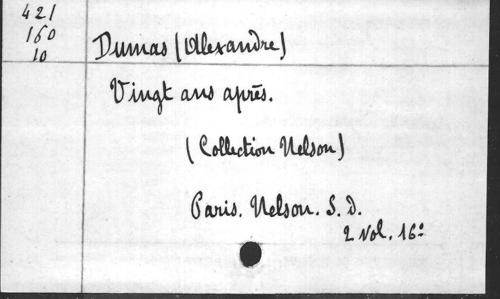 421
160
10
Dumas (Alexandre)
Vingt ans après.
(Collection Nelson)
Paris. Nelson. S. d.
2 vol. 16º